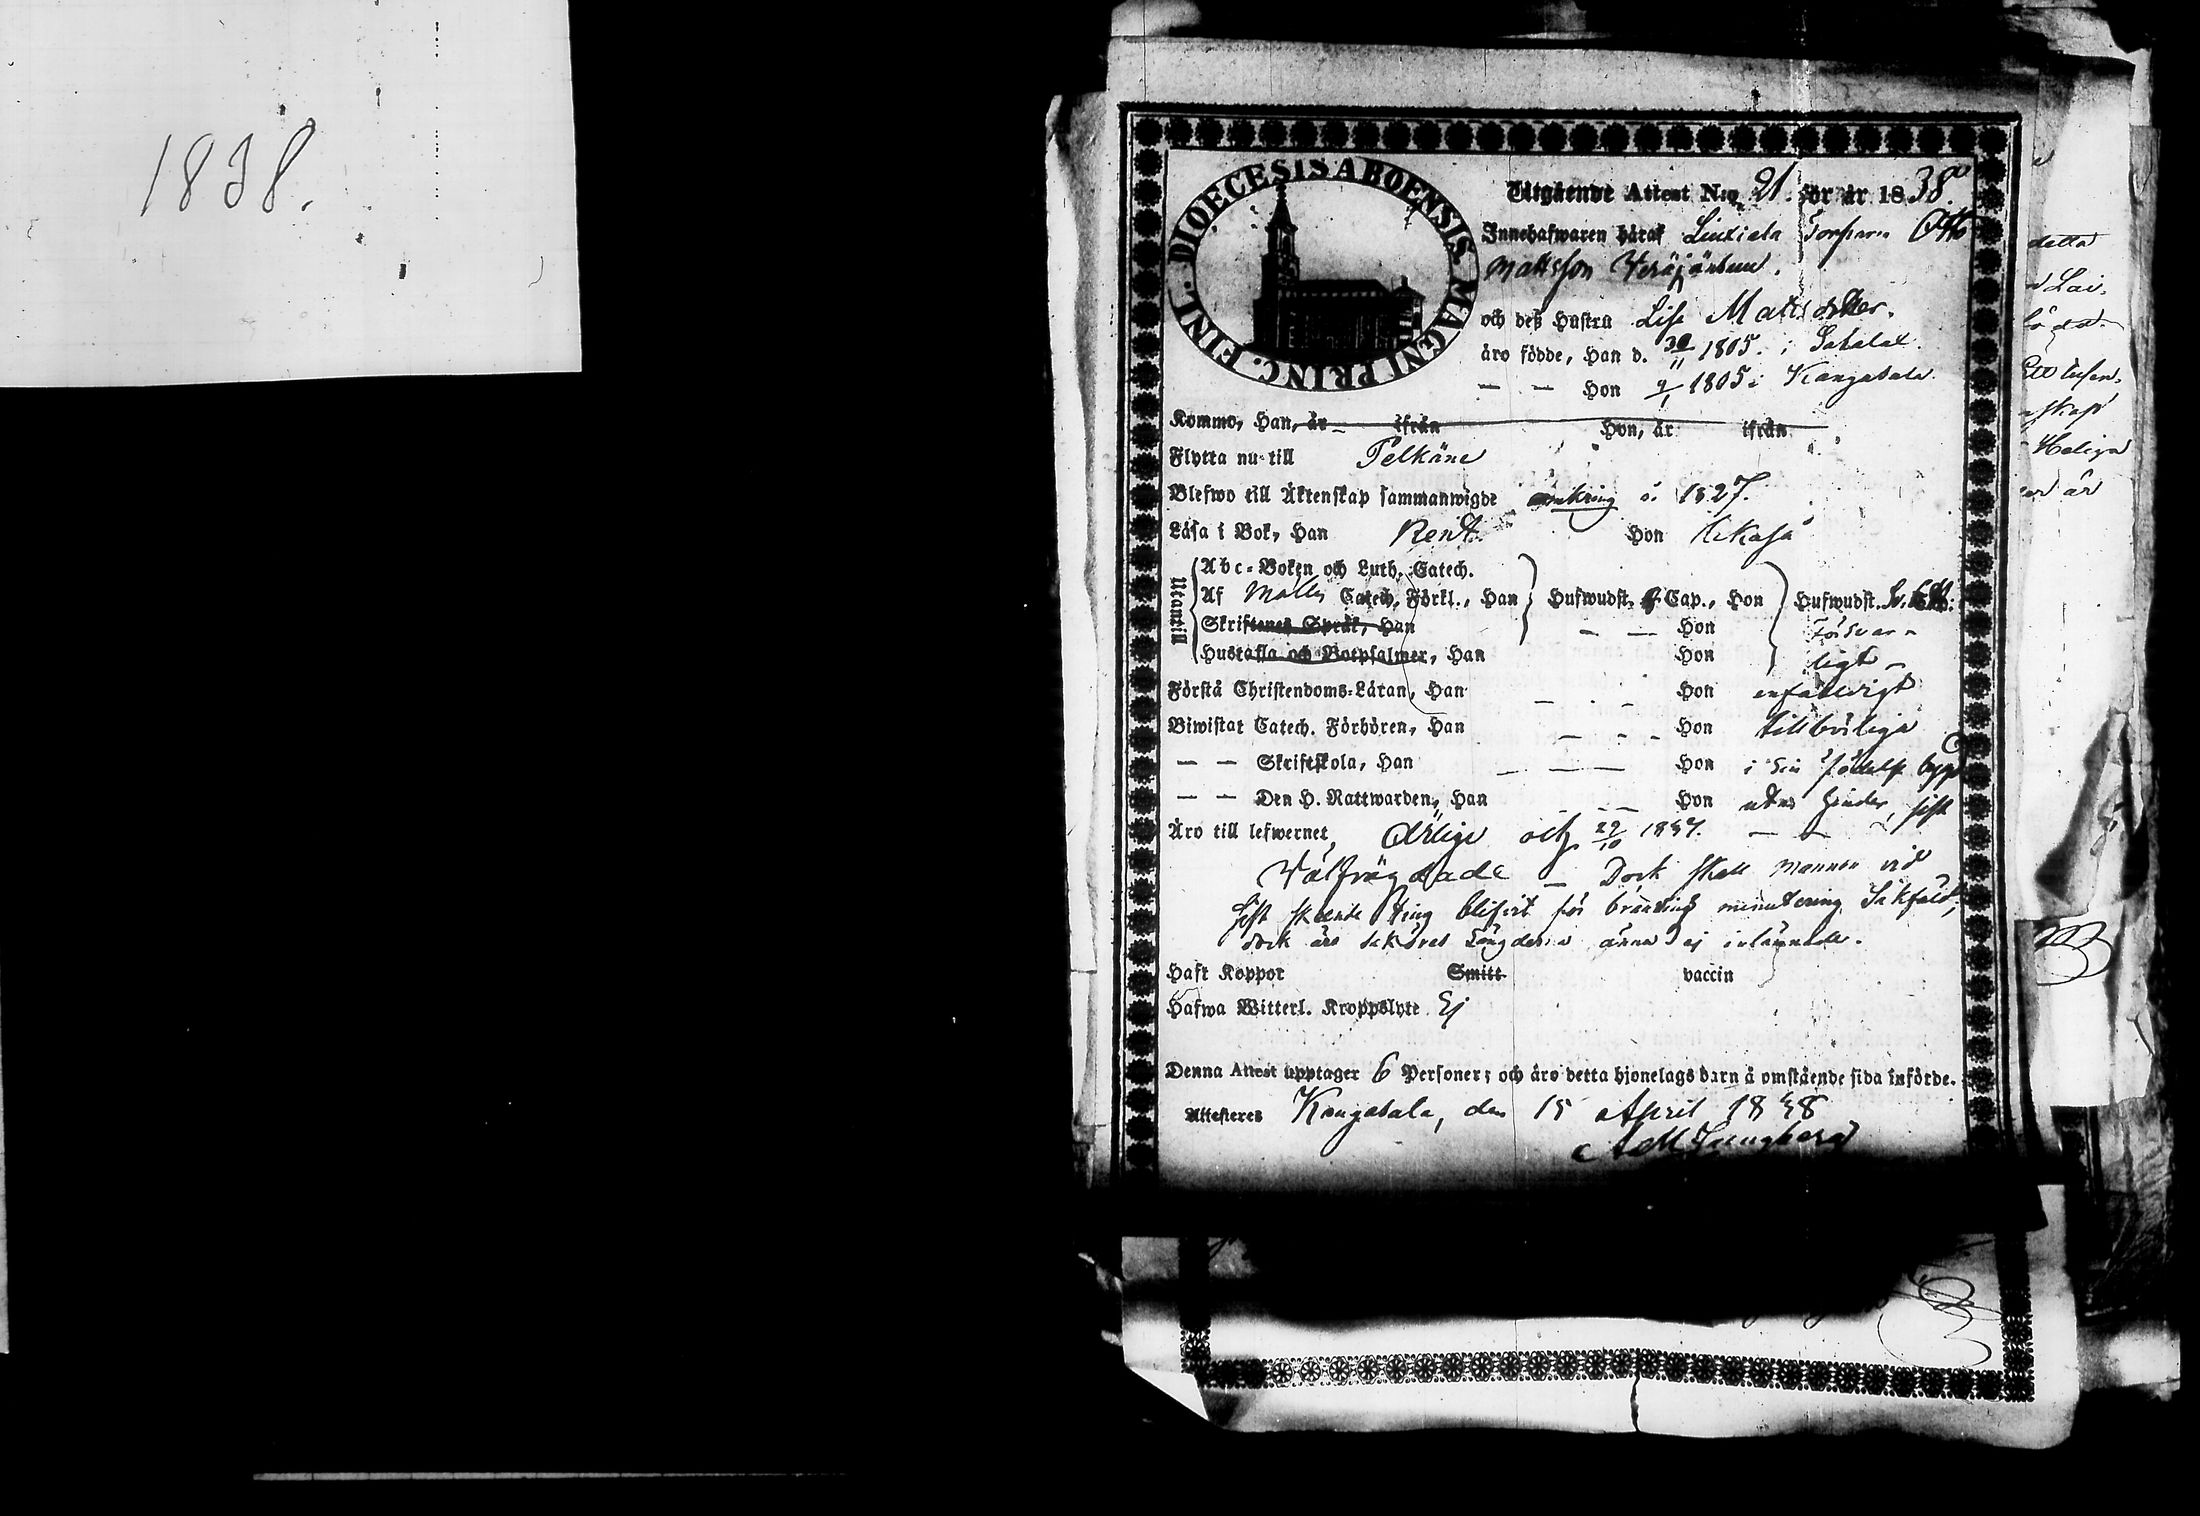 1838.
DIOECESIS ABOENSIS. MAGNI PRINC. FINL.
Utgående Attest N:o 21. för år 1838.
Innehafwaren häraf Liuxiala Torpare Otto
Mattsson Veräjänsuu.
och deß Hustru Lisa Mattsdotter.
äro födde, Han d. 30/11 1805. i Sahalax.
— — Hon 9/1 1805 i Kangasala
Kommo, Han, år ifrån Hon, år ifrån
Flytta nu till Pelkäne
Blefwo till Äktenskap sammanwigde omkring å. 1827.
Läsa i Bok, Han Rent. Hon likaså
Utantill
Abc-Boken och Luth. Catech.
Af Catech. Förkl., Han Hufwudst. Cap., Hon Hufwudst.
Skriftenes Språk, Han — — Hon försvar-
Hustafla och Botpsalmer, Han Hon ligt
Förstå Christendoms-Läran, Han — - — Hon enfaldigt
Biwistat Catech. Förhören, Han — - - Hon tillbörliga
— — Skriftskola, Han — — — Hon i sin födelse bygd
— — Den H. Nattwarden, Han — — Hon utan hinder, sist
Äro till lefwernet ärlige och 29/10 1837. — —
Välfrägdade — Dock skall mannen vid
sist skedde ting blifvit för bränvins minutering sakfäld,
dock äro saköres Längderna ännu ej inlämnade.
Haft Koppor Smitt vaccin
Hafwa Witterl. Kroppslyte Ej
Denna Attest upptager 6 Personer; och äro detta hjonelags barn å omstående sida införde.
Attesteras Kangasala, den 15 April 1838
detta
Lai-
Heliga
är